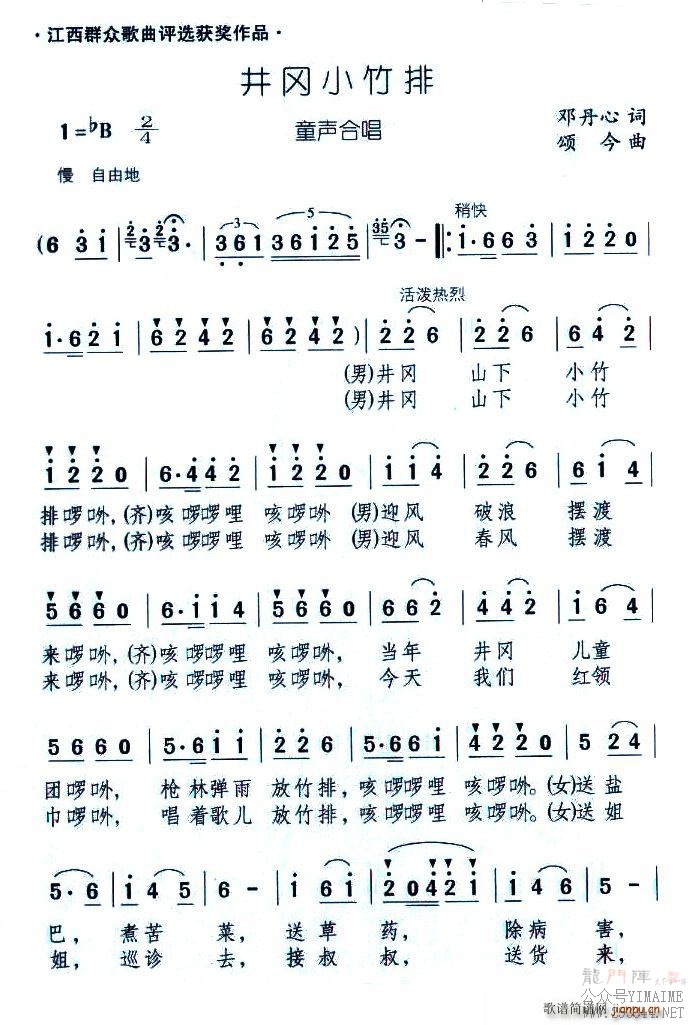 ·江西群众歌曲评选获奖作品·
井冈小竹排
1=♭B 2/4 童声合唱 邓丹心 词
颂今 曲
慢 自由地
稍快
(6 3 i | 2 3 2 3· | 3 6 1 3 6 i 2 5 | 35 3 - |: i·6 6 3 | i 2 2 0 |
活泼热烈
i·6 2 i | 6 2 4 2 | 6 2 4 2 ) | 2 2 6 | 2 2 6 | 6 4 2 |
(男)井冈 山下 小竹
(男)井冈 山下 小竹
i 2 2 0 | 6·4 4 2 | i 2 2 0 | 2 2 6 | 2 2 6 | 6 i 4 |
排啰哟,(齐)咳啰啰哩 咳啰哟 (男)迎风 破浪 摆渡
排啰哟,(齐)咳啰啰哩 咳啰哟 (男)迎风 春风 摆渡
5 6 6 0 | 6·i i 4 | 5 6 6 0 | 6 6 2 | 4 4 2 | i 6 4 |
来啰哟,(齐)咳啰啰哩 咳啰哟, 当年 井冈 儿童
来啰哟,(齐)咳啰啰哩 咳啰哟, 今天 我们 红领
5 6 6 0 | 5·6 i i | 5 6 6 0 | 6·6 i i | 4 2 2 0 | 5 2 4 |
团啰哟, 枪林弹雨 放竹排,咳啰啰哩 咳啰哟。(女)送盐
巾啰哟, 唱着歌儿 放竹排,咳啰啰哩 咳啰哟。(女)送姐
5·6 | i 6 i | 5 - | i 6 i | 2 0 4 2 i | i 2 4 | 6 - |
巴, 煮苦 菜, 送草 药, 除病 害,
姐, 巡诊 去, 接叔 叔, 送货 来,
龍門陣
公众号YIMAIME
歌谱简谱网 jianpu.cn